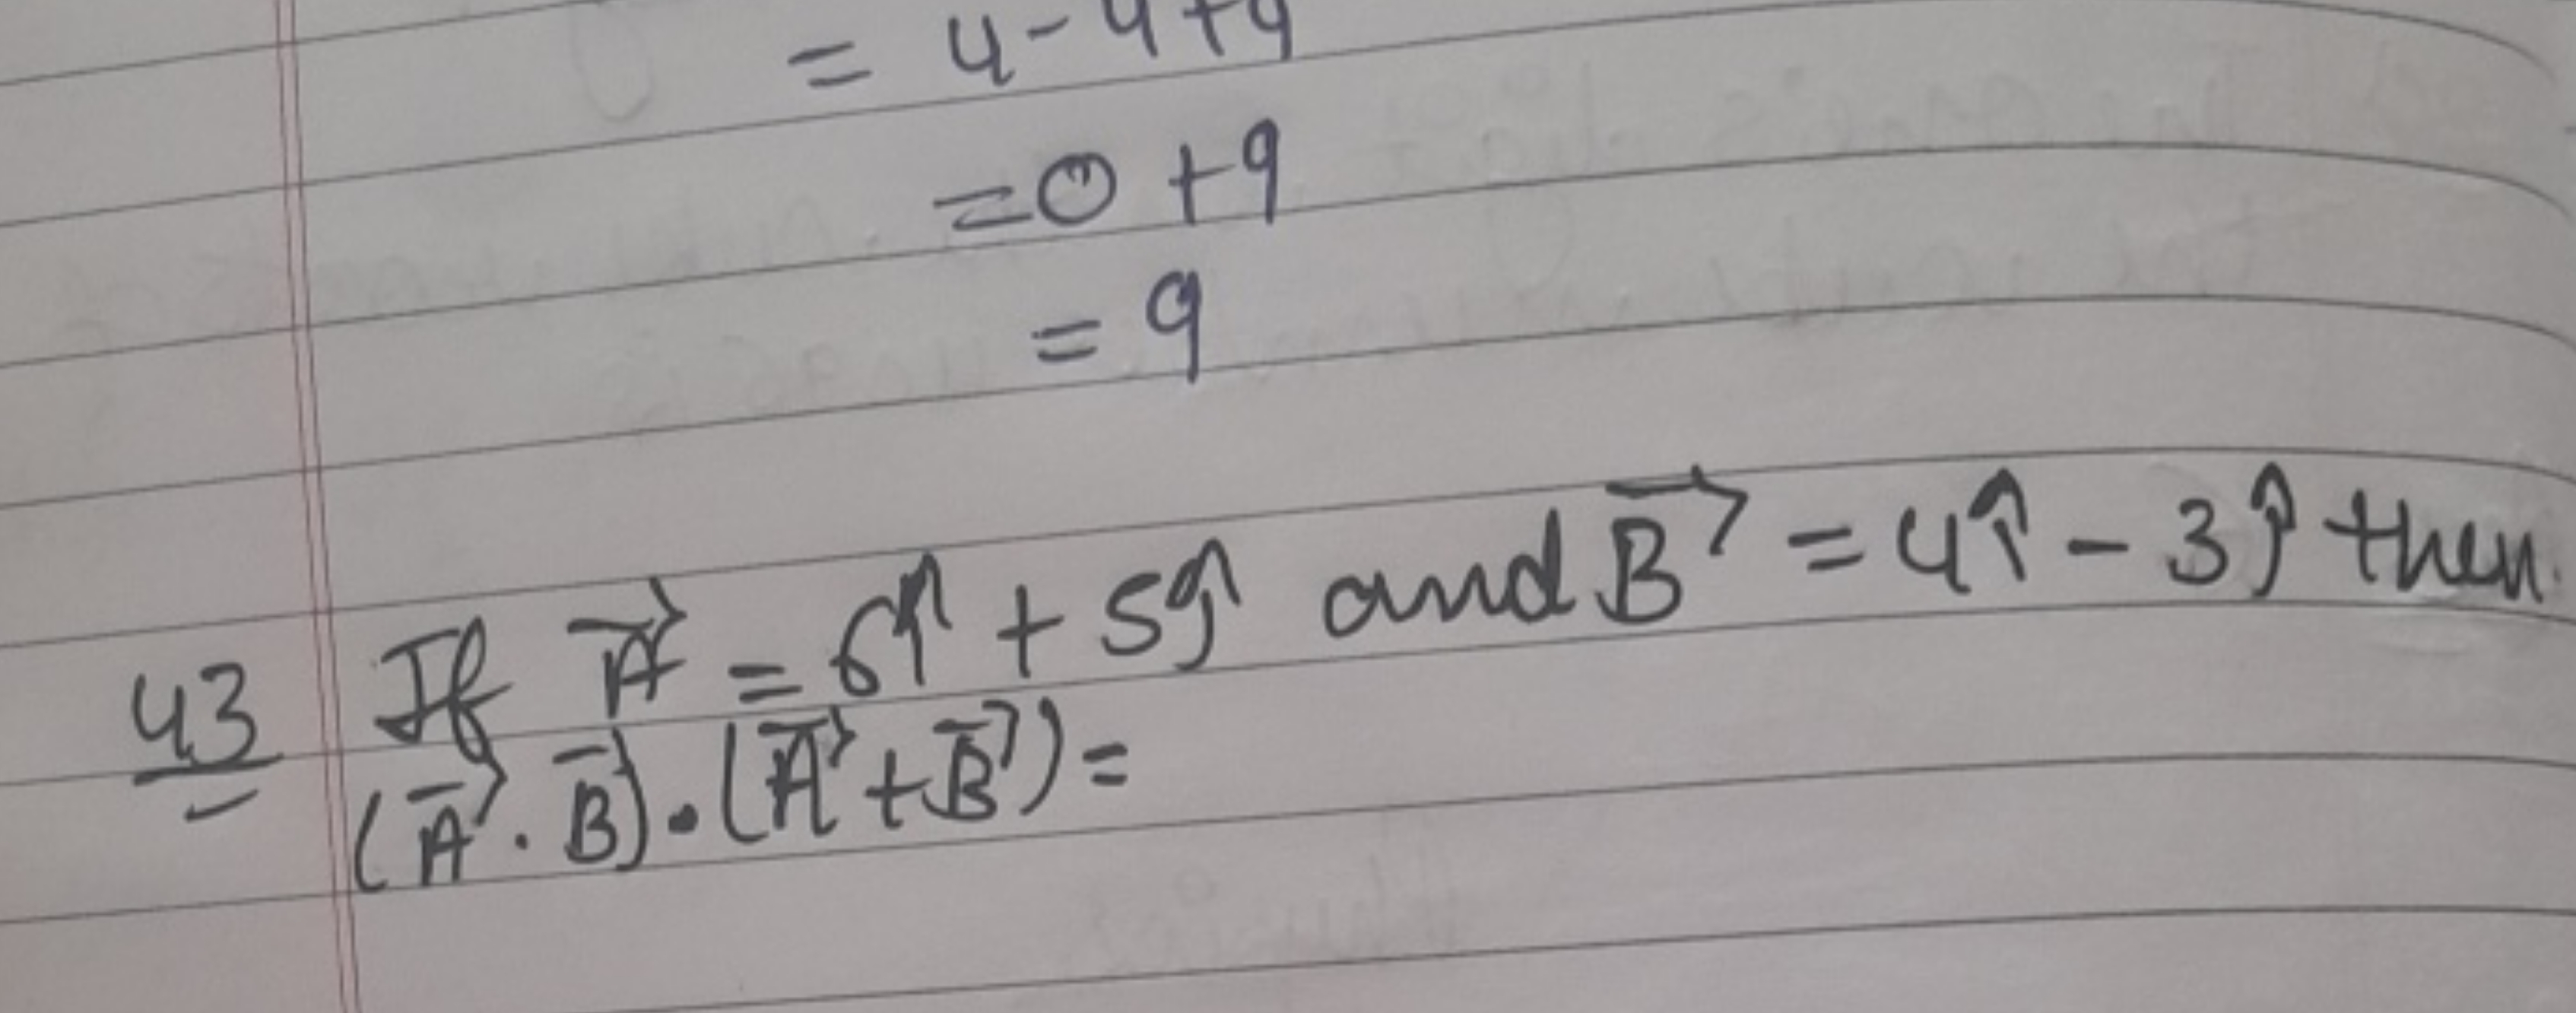 = 4 - 4 + 9
= 0 + 9
= 9
43 If A⃗ = 6î + 5ĵ and B⃗ = 4î - 3ĵ then
(A⃗ . B⃗) . (A⃗ + B⃗) =